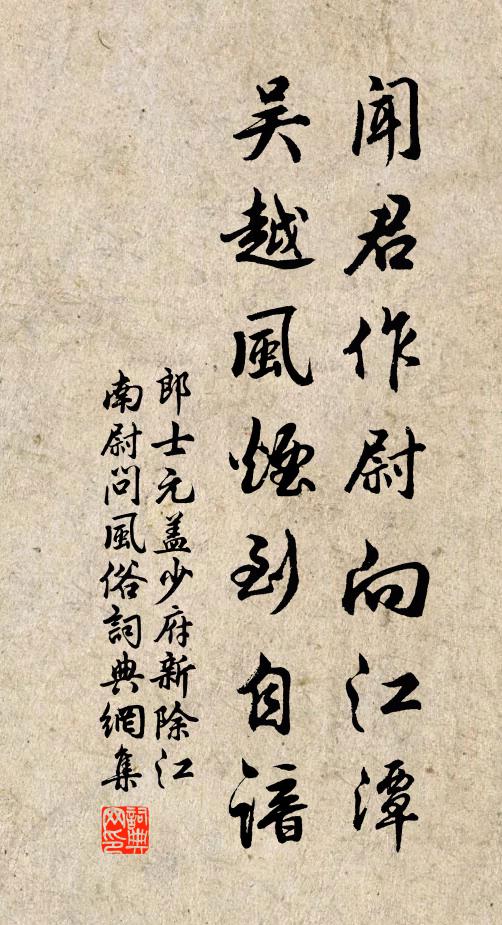 聞君作尉向江潭
吳越風煙到自諳
郎士元蓋少府新除江
南尉問風俗詞典網集
詞典
网印